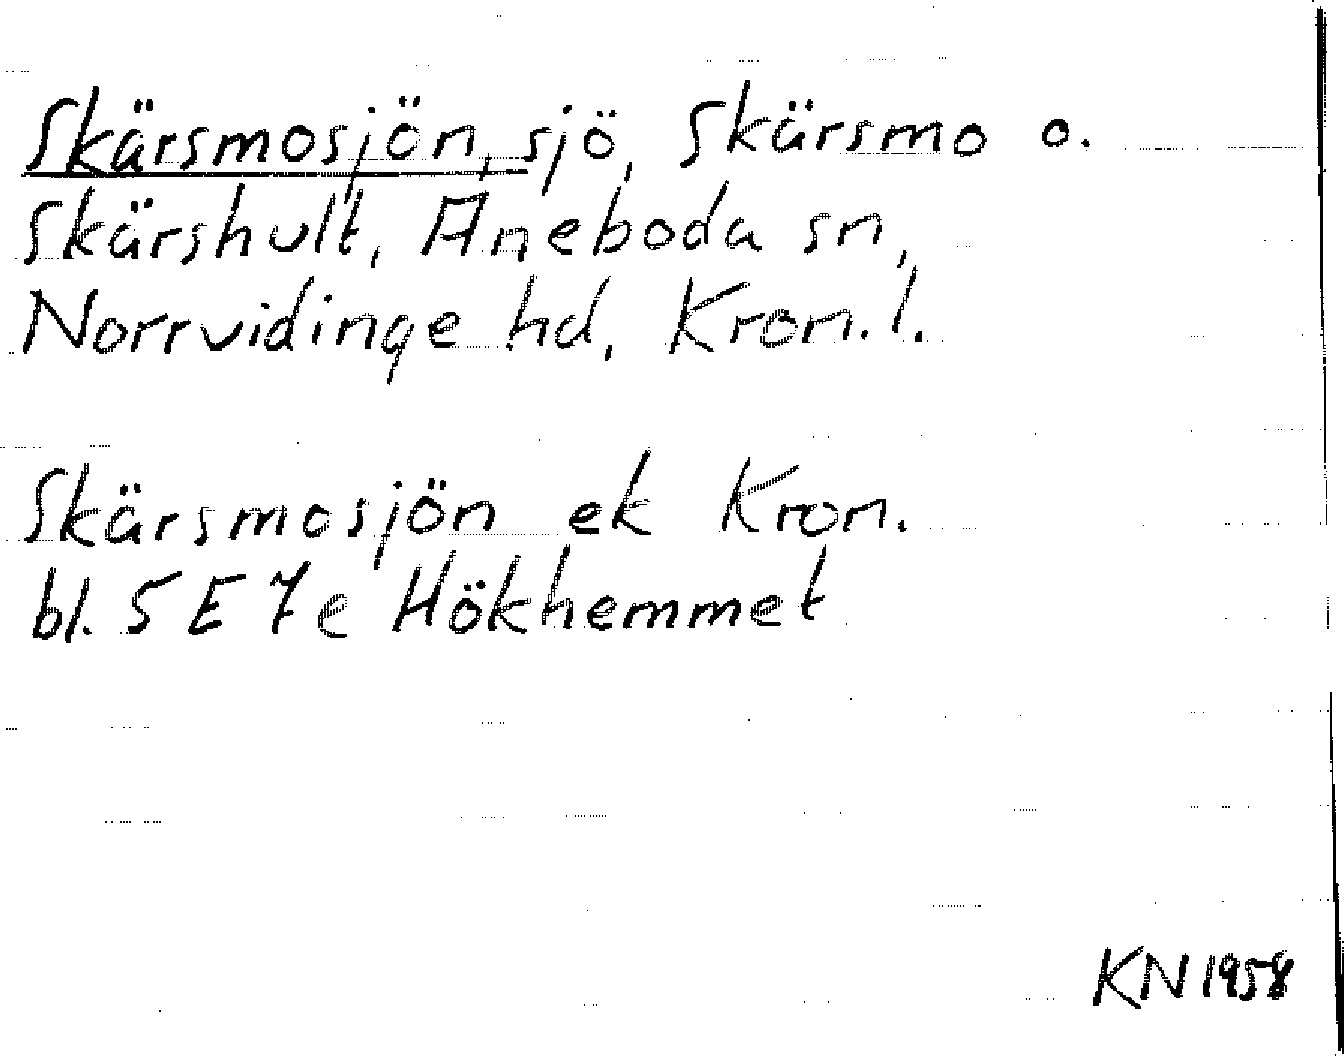 Skärsmosjön, sjö, Skärsmo o.
Skärshult, Aneboda sn,
Norrvidinge hd, Kron. l.
Skärsmosjön ek Kron.
bl. 5 E 7e Hökhemmet
KN 1958